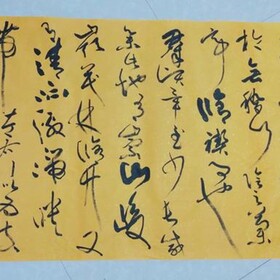 於會稽山陰之蘭
亭脩禊事也
群賢畢至少長咸
集此地有崇山峻
嶺茂林修竹又
有清流激湍映
帶左右引以為流